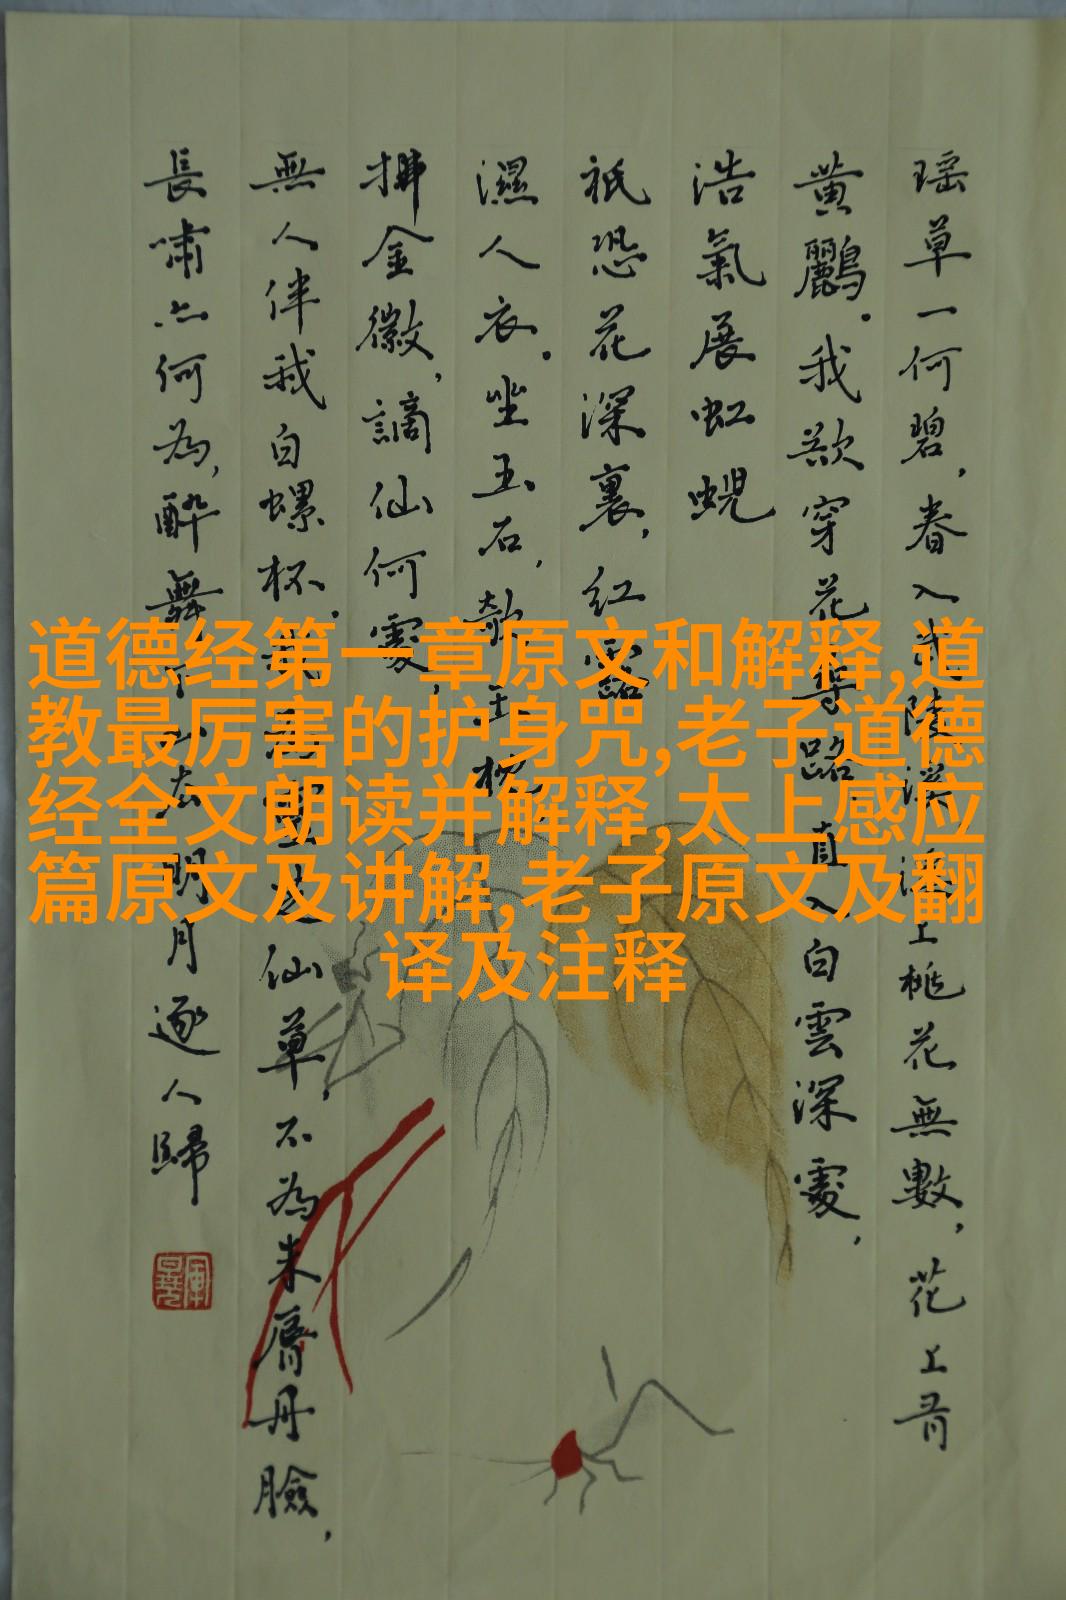 瑶草一何碧，春入武陵溪，溪上桃花無數，花上有
黄鸝。我欲穿花尋路，直入白雲深處，
浩氣展虹蜺
祇恐花深裏，紅露
濕人衣。坐玉石，欹玉枕，
拂金徽，謫仙何處，
無人伴我白螺杯。我為靈芝仙草，不為朱脣丹臉，
長嘯亦何為，醉舞下山去 明月逐人歸
道德经第一章原文和解释,道
教最厉害的护身咒,老子道德
经全文朗读并解释,太上感应
篇原文及讲解,老子原文及翻
译及注释